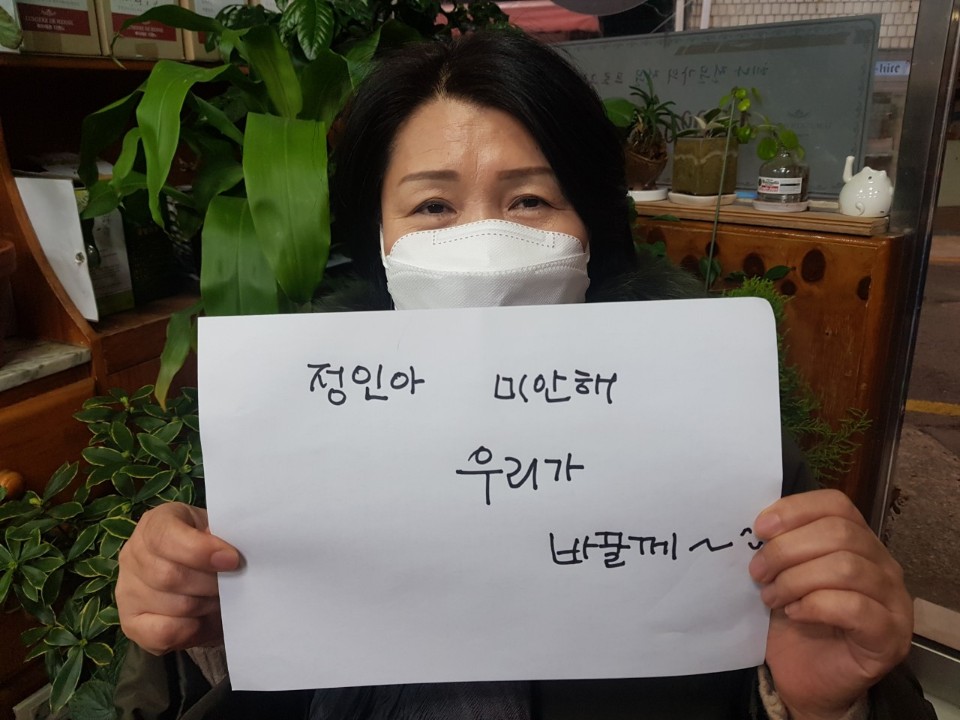 정인아 미안해
우리가
바꿀께~
-hite